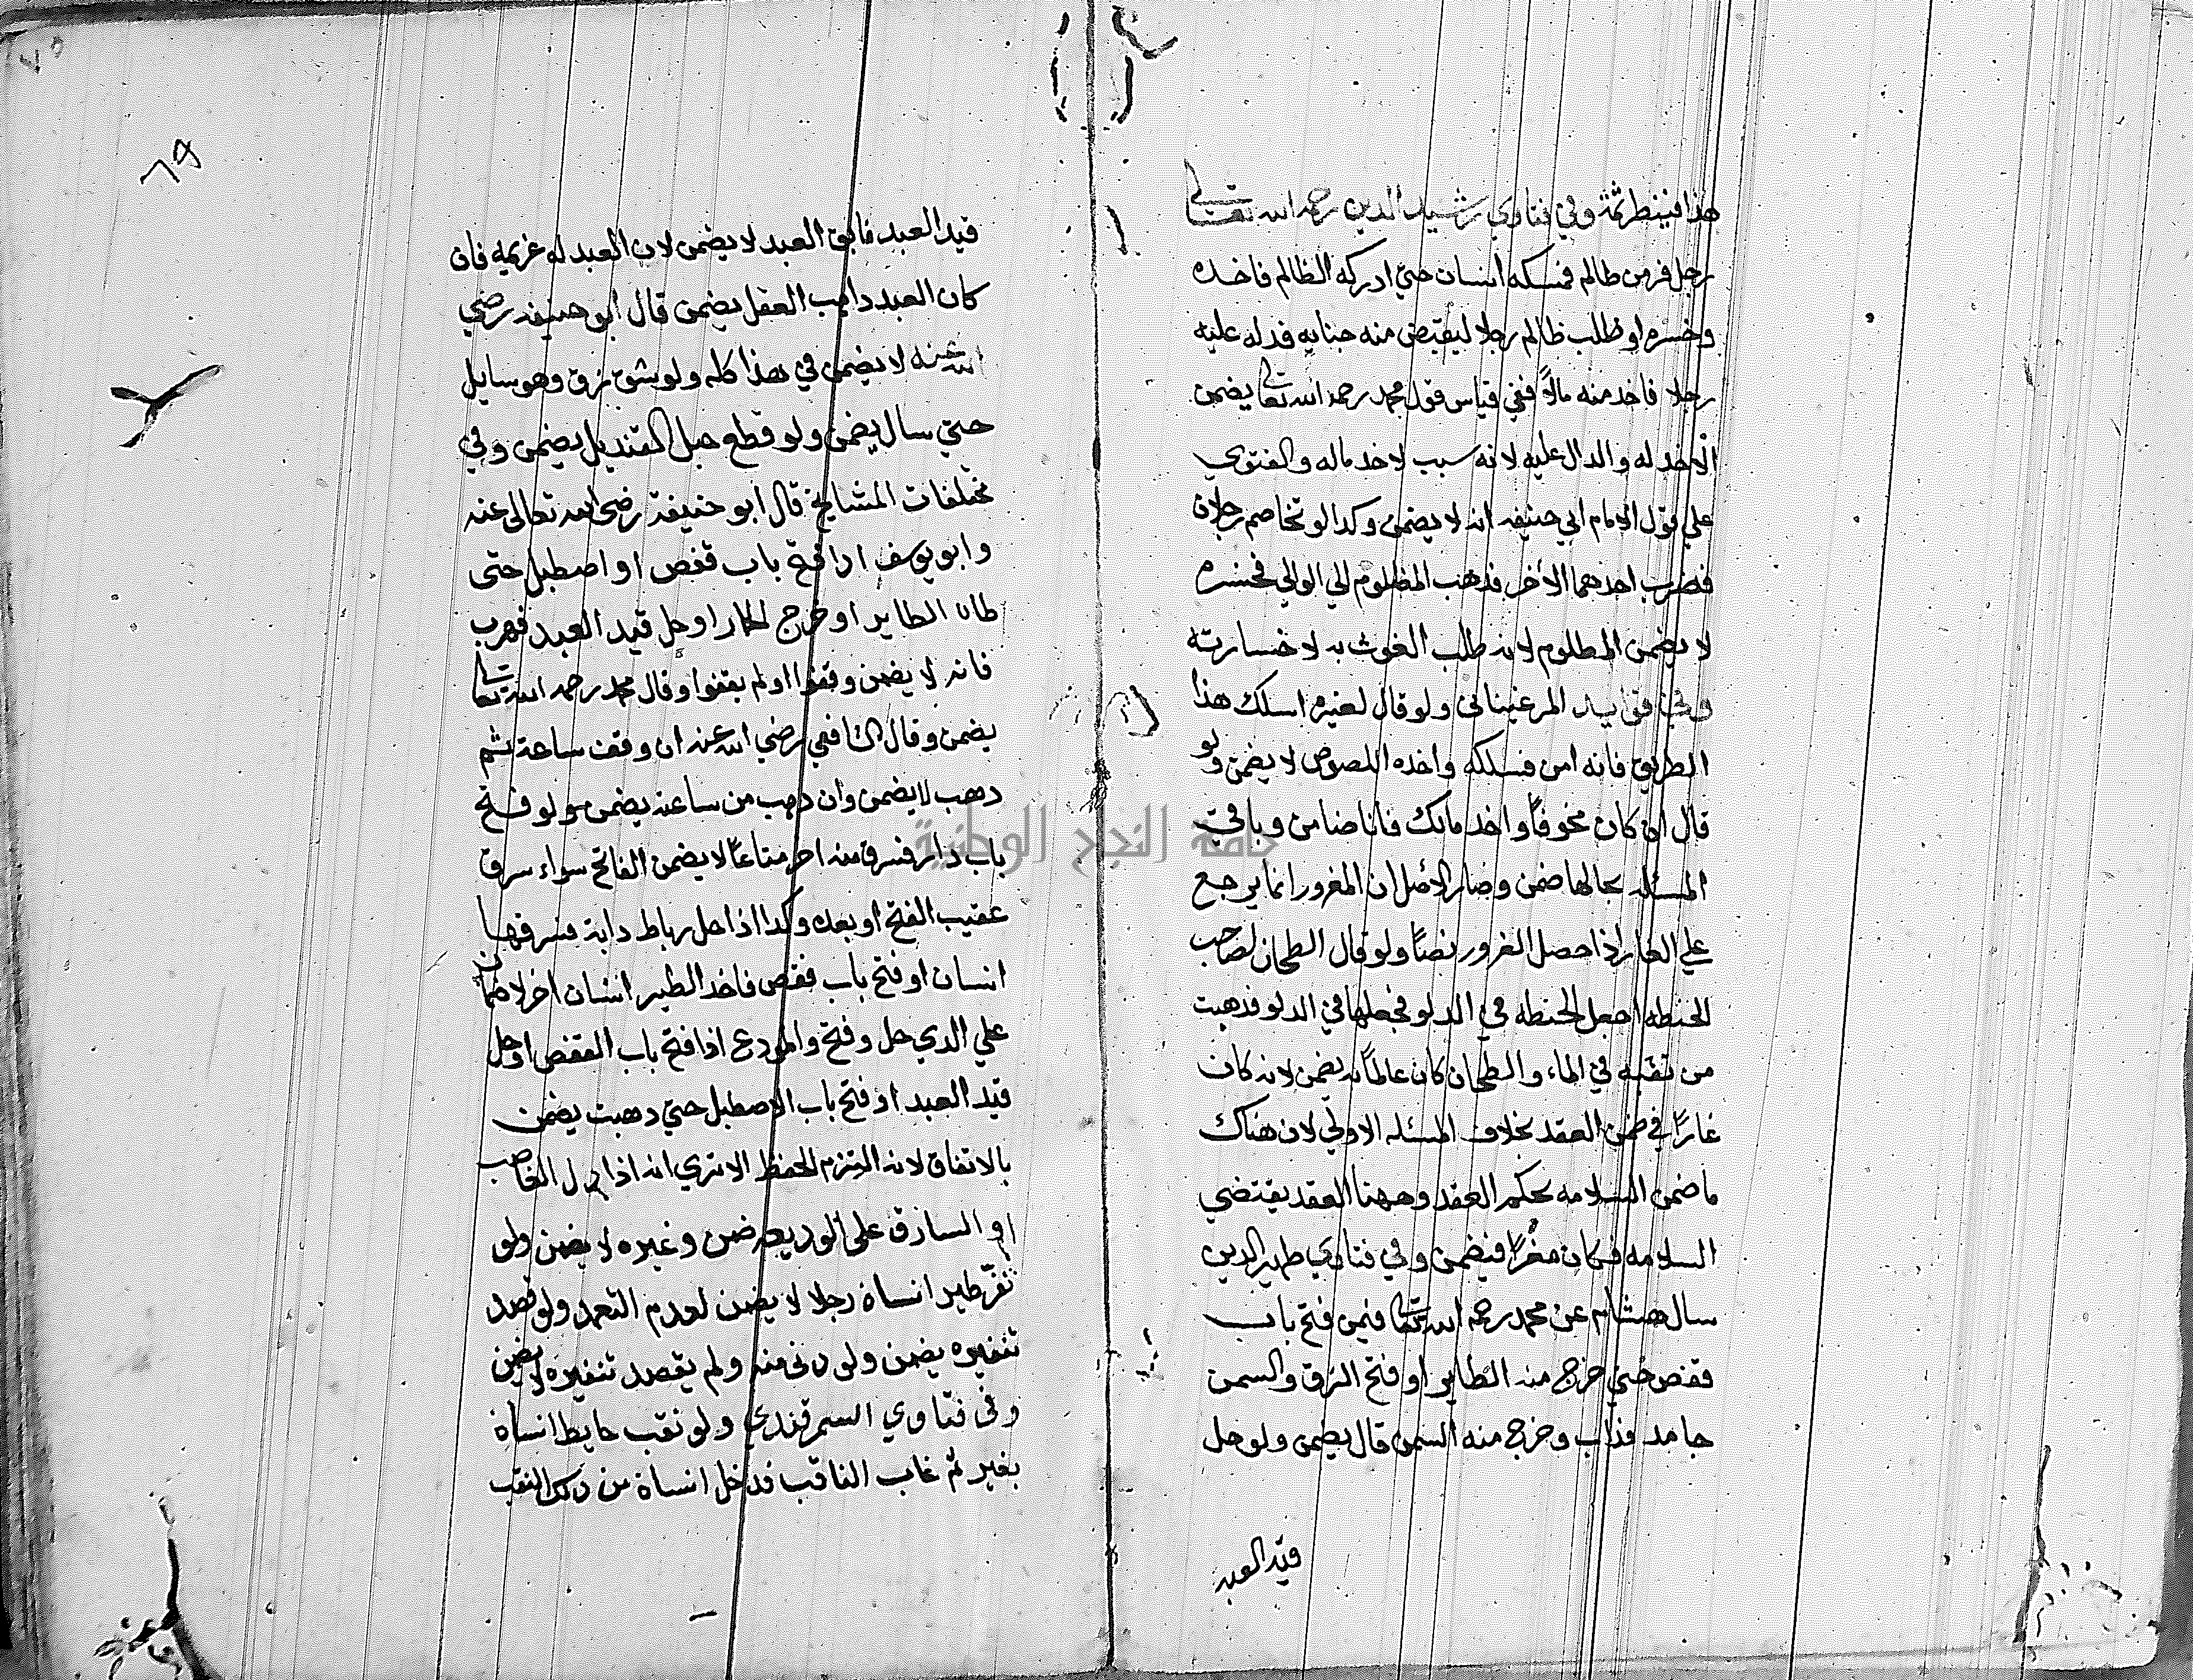 هذا فينظر ثمة وفي فتاوي رشيد الدين رحمه الله تعالى
رجل فر من ظالم فمسكه انسان حتي ادركه الظالم فاخده
وخسره او طلب ظالم رجلا ليقبض منه جنايه فدله عليه
رجلا فاخد منه مالاً ففي قياس قول محمد رحمه الله تعالى يضمن
الاخد له والدال عليه لانه سبب لاخد ماله والفتوي
علي قول الامام ابي حنيفه انه لا يضمن وكدا لو تخاصم رجلان
فضرب احدهما الاخر فدهب المظلوم الي الوالي فخسره
لا يضمن المظلوم لانه طلب الغوث به لا خسارته
وفي فوايد المرغيناني ولو قال لغيره اسلك هذا
الطريق فانه امن فسلكه واخده اللصوص لا يضمن ولو
قال ان كان مخوفاً واخد مالك فانا ضامن وباقي
المسئله بحالها ضمن وصار الاصل ان المغرور انما يرجع
علي الغار اذا حصل الغرور نصاً ولو قال الطحان لصاحب
الحنطه اجعل الحنطه في الدلو فجعلها في الدلو فدهبت
من ثقبه في الماء والطحان كان عالماً به يضمن لانه كان
غاراً في ضمن العقد بخلاف المسئله الاولي لان هناك
ما ضمن السلامه بحكم العقد وههنا العقد يقتضي
السلامه فكان مغراً فيضمن وفي فتاوي ظهير الدين
سال هشام عن محمد رحمه الله تعالى فيمن فتح باب
قفص حتي خرج منه الطاير او فتح الزق والسمن
جامد فذاب وخرج منه السمن قال يضمن ولو حل
قيد العبد
٦٩
قيد العبد فابق العبد لا يضمن لان العبد له عزيمه فان
كان العبد داهب العقل يضمن قال ابو حنيفه رضي
الله عنه لا يضمن في هذا كله ولو شق زق وهو سايل
حتي سال يضمن ولو قطع حبل القنديل يضمن وفي
مختلفات المشايخ قال ابو حنيفة رضى الله تعالى عنه
وابو يوسف ادا فتح باب قفص او اصطبل حتى
طار الطاير او خرج الحمار او حل قيد العبد فهرب
فانه لا يضمن وقفوا او لم يقفوا وقال محمد رحمه الله تعالى
يضمن وقال الشافعي رضي الله عنه ان وقف ساعة ثم
دهب لا يضمن وان دهب من ساعته يضمن ولو فتح
باب دار فسرق منه اخر متاعاً لا يضمن الفاتح سواء سرق
عقيب الفتح او بعده وكدا اذا حل رباط دابة فسرقها
انسان او فتح باب قفص فاخد الطير انسان اخر لا ضمان
علي الدي حل وفتح والمودع اذا فتح باب القفص او حل
قيد العبد او فتح باب الاصطبل حتي دهبت يضمن
بالاتفاق لانه التزم الحفظ الا تري انه اذا دل الغاصب
او السارق على الوديعه ضمن وغيره لا يضمن ولو
نفر طير انسان رجلا لا يضمن لعدم التعمد ولو قصد
تنفيره يضمن ولو دنى منه ولم يقصد تنفيره لا يضمن
وفي فتاوي السمرقندي ولو نقب حايط انسان
بغير ثم غاب الناقب فدخل انسان من ذلك النقب
جامعة النجاح الوطنية